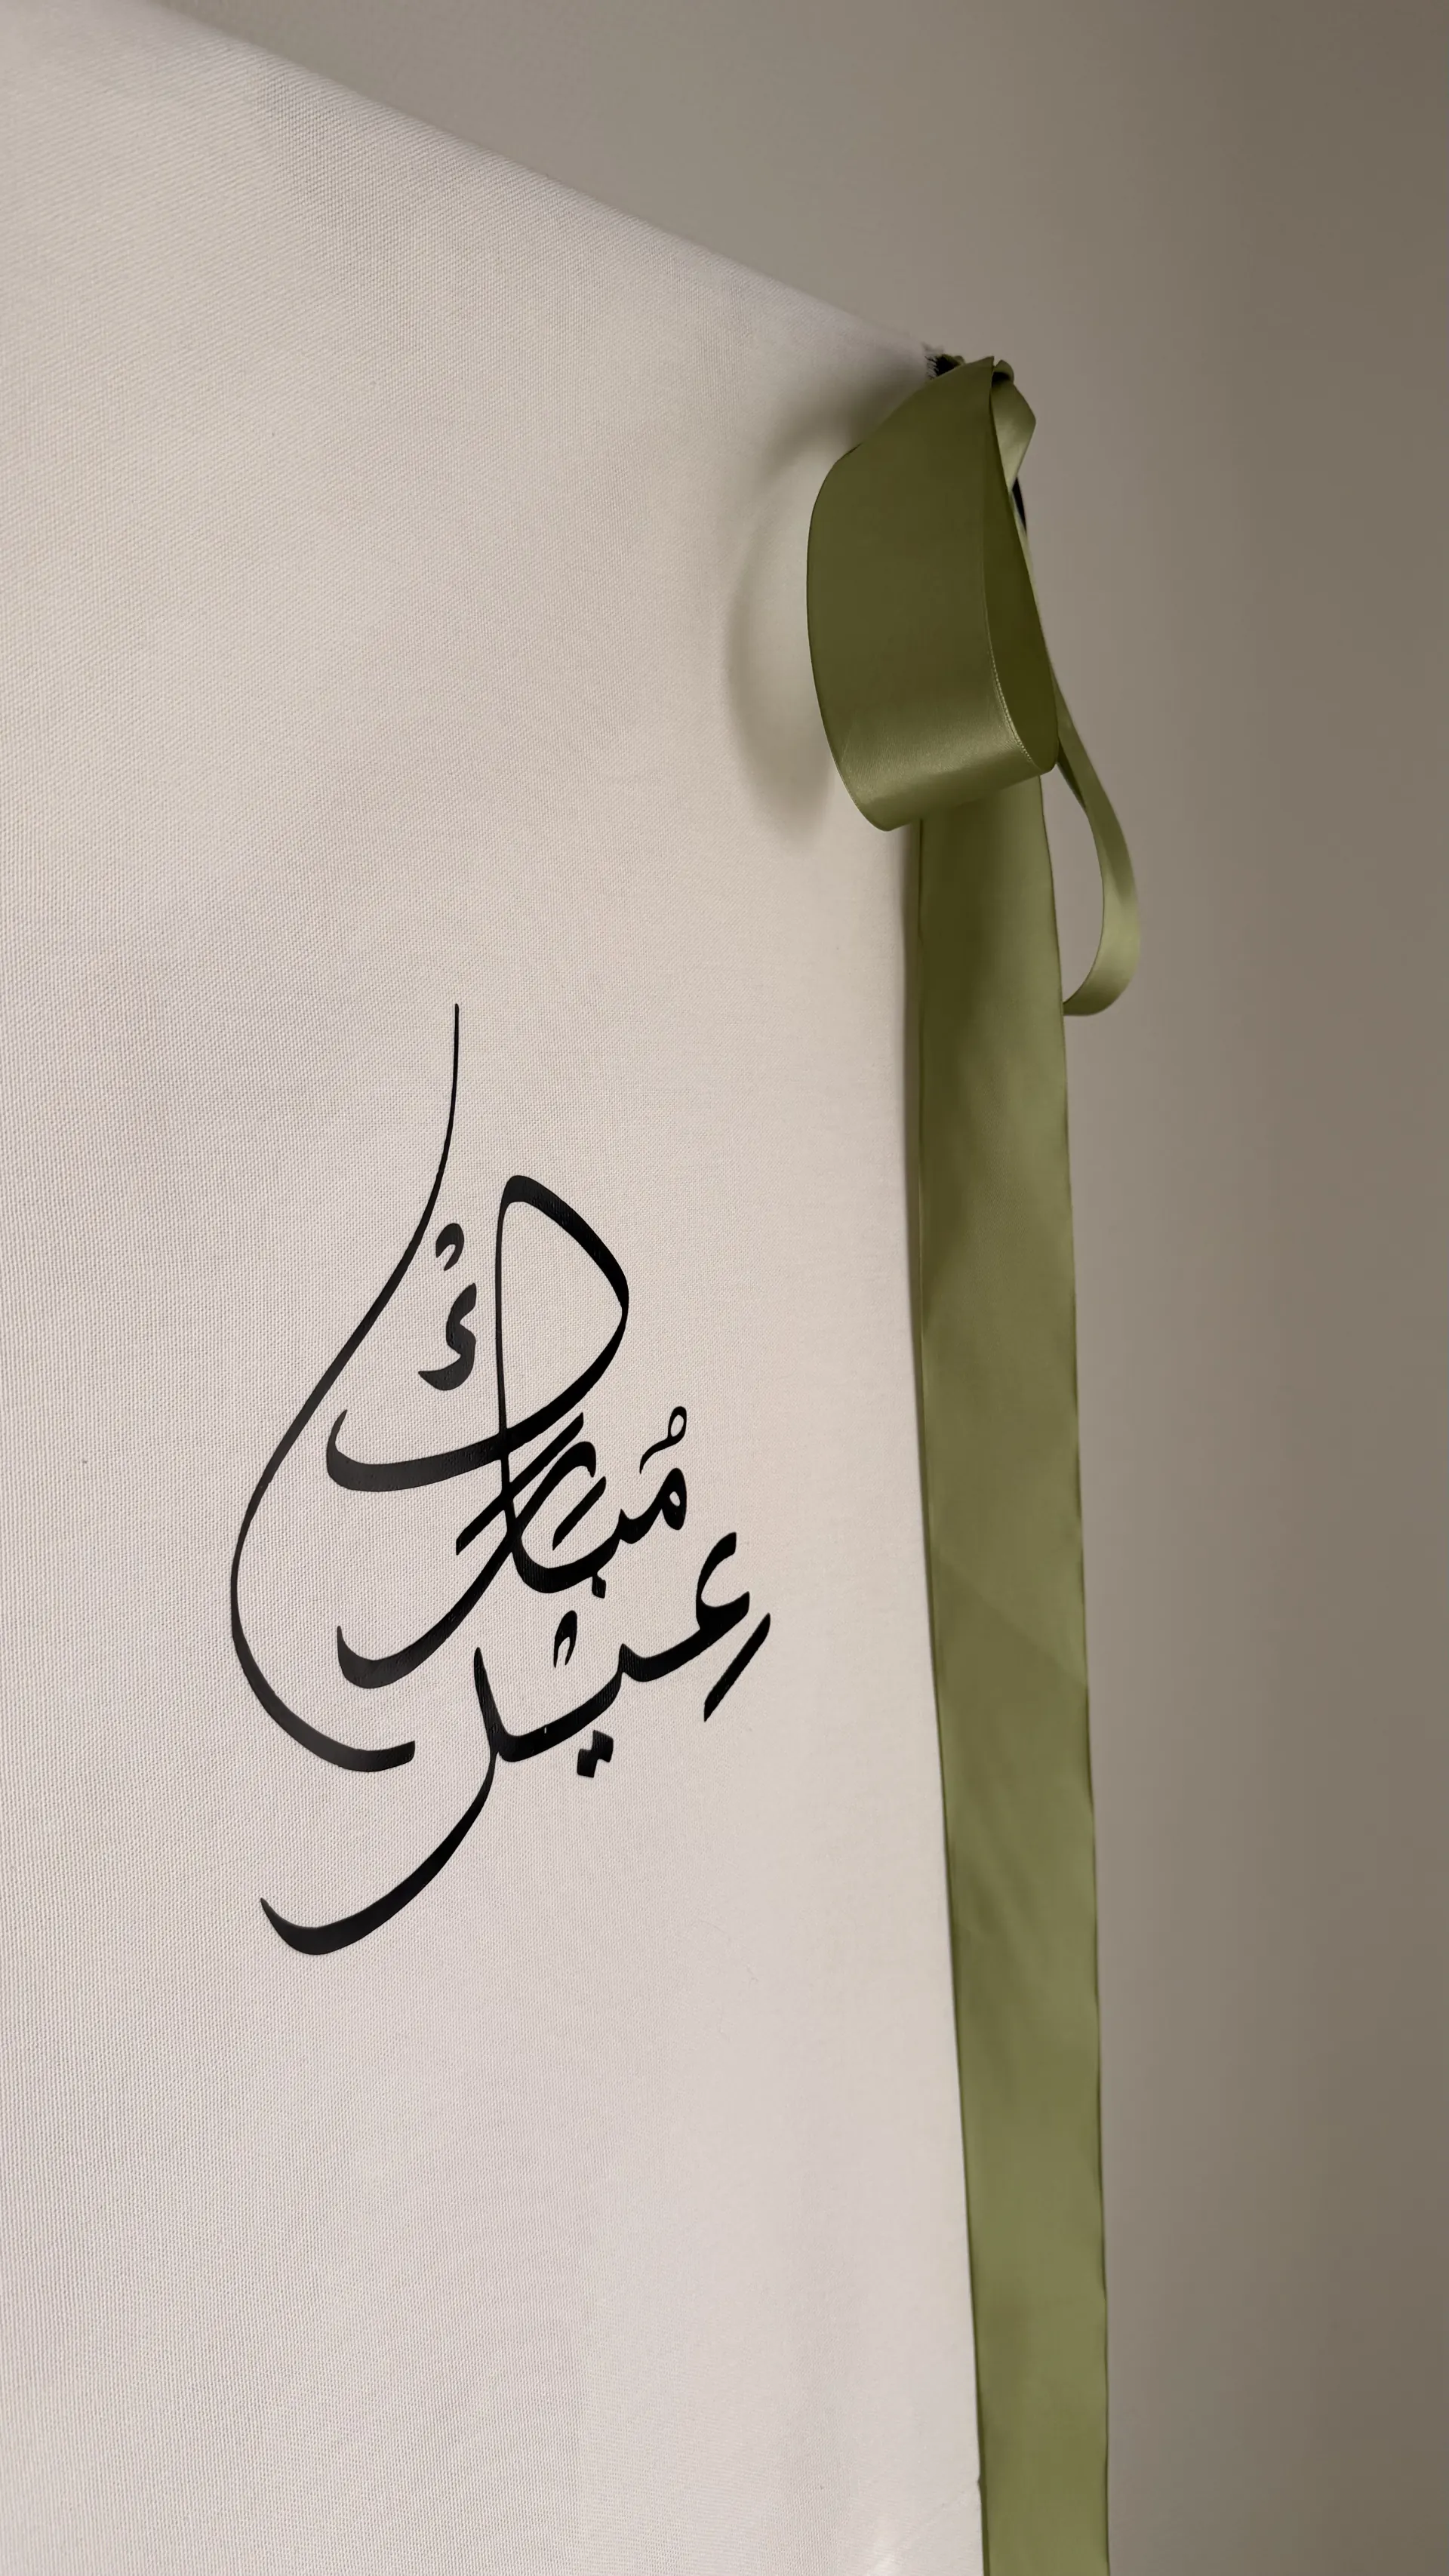 عِيْد
مُبَارَكْ